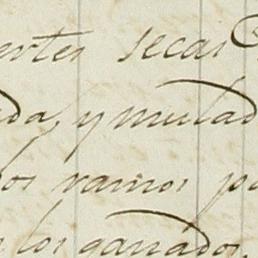 entes secas
da, y mulad
os vamos pa
los ganados.